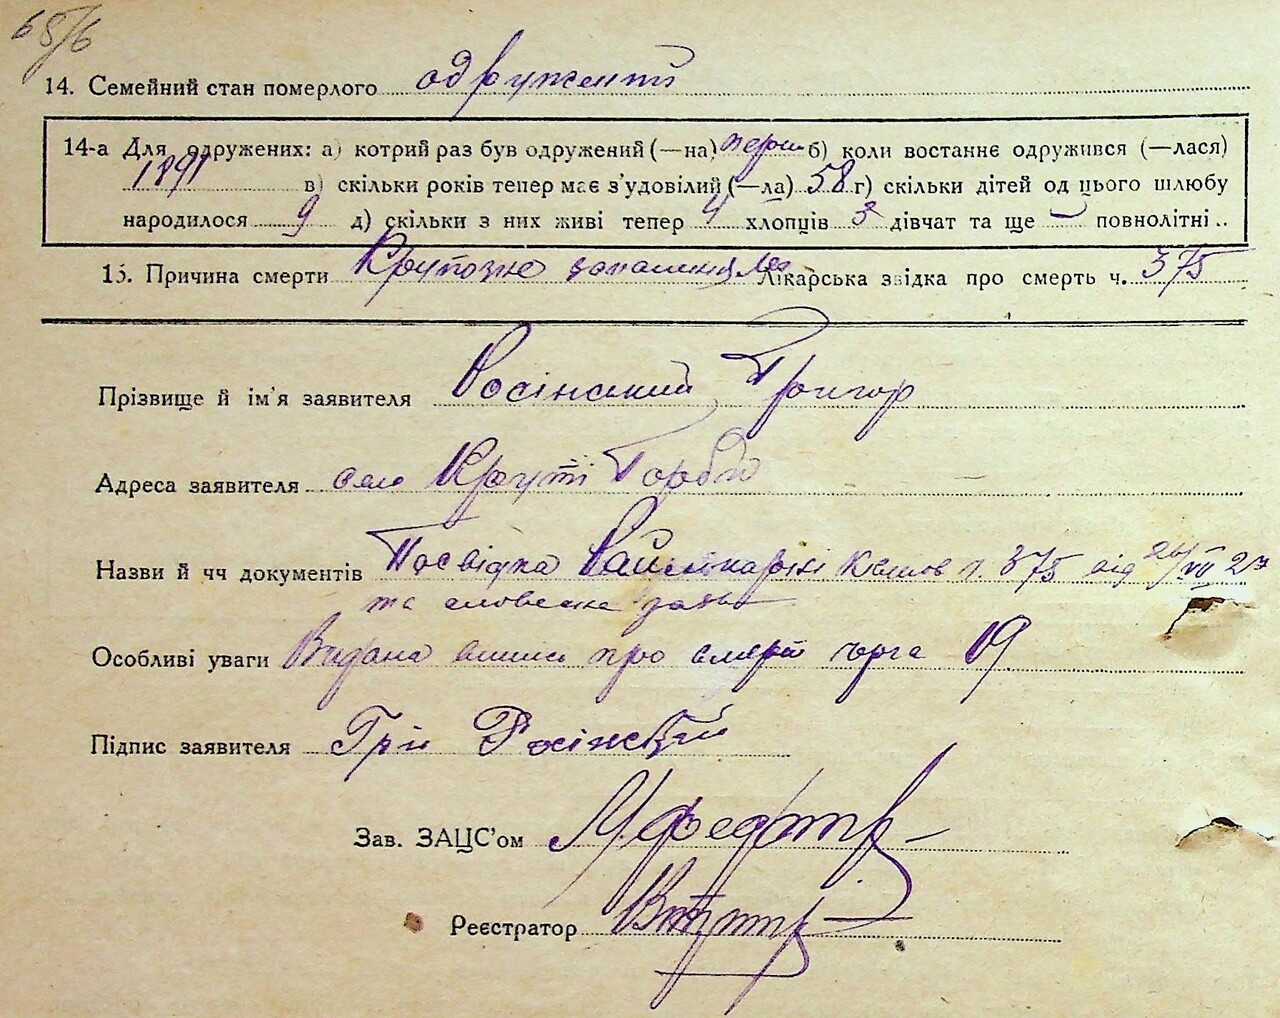 65/6
14. Семейний стан померлого одружений
14-а Для одружених: а) котрий раз був одружений (—на) перш б) коли востаннє одружився (—лася)
1891 в) скільки років тепер має з'удовілий (—ла) 58 г) скільки дітей од цього шлюбу
народилося 9 д) скільки з них живі тепер 4 хлопців 3 дівчат та ще — повнолітні ..
15. Причина смерти Крупозне запалення Лег Лікарська звідка про смерть ч. 375
Прізвище й ім'я заявителя Росінський Григор
Адреса заявителя село Круті Горби
Назви й чч документів Посвідка ч. 375 від 26/VII 27
та словесна заява
Особливі уваги Видана випись про смерть 19
Підпис заявителя Гри Росінский
Зав. ЗАЦС'ом
Реєстратор